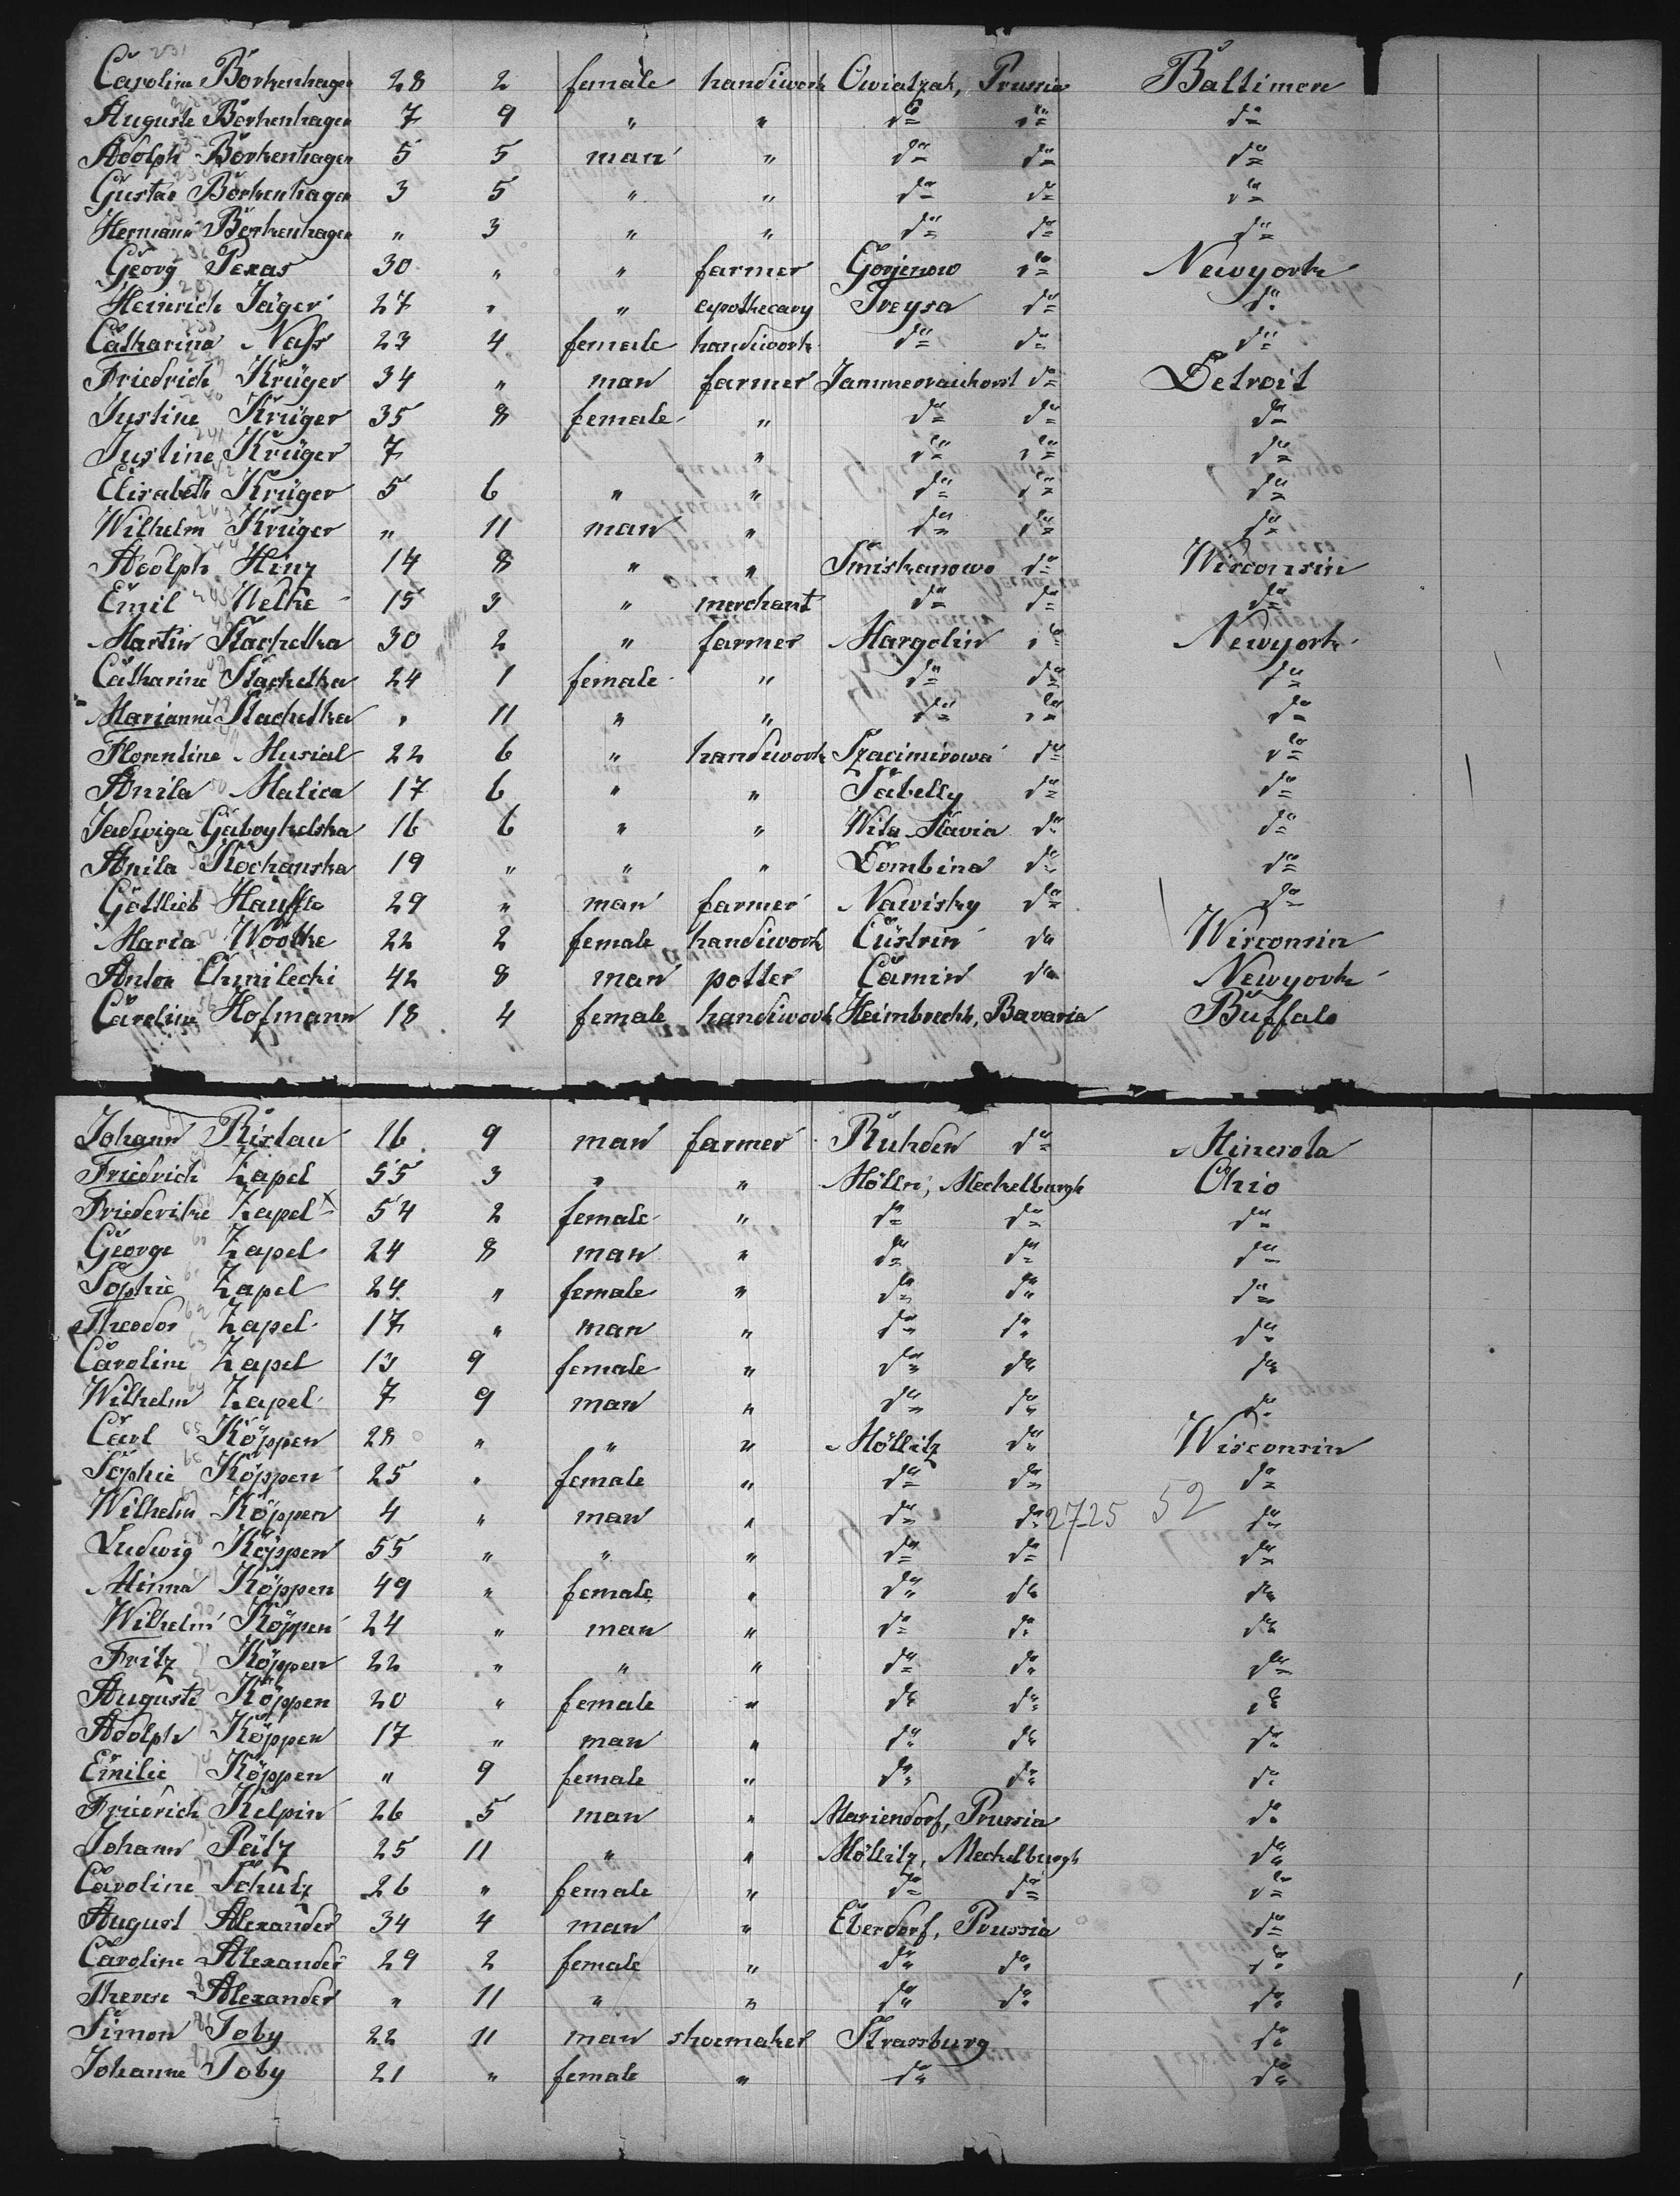 Caroline Borkenhagen 28 2 female handiwork Owiatzek, Prussia Baltimore
Auguste Borkenhagen 7 9 " " do do do
Adolph Borkenhagen 5 5 man " do do do
Gustav Borkenhagen 3 5 " " do do do
Hermann Borkenhagen " 3 " " do do do
Georg Pexas 30 " " farmer Gorjenow do Newyork
Heinrich Jäger 27 " " apothecary Treysa do do
Catharina Nass 23 4 female handiwork do do do
Friedrich Krüger 34 " man farmer Jammerauhorst do Detroit
Justine Krüger 35 8 female " do do do
Justine Krüger 7 " do do do
Elisabeth Krüger 5 6 " " do do do
Wilhelm Krüger " 11 man " do do do
Adolph Hinz 14 8 " " Smiskanowo do Wisconsin
Emil Welke 15 3 " merchant do do do
Martin Stachelka 30 2 " farmer Margolin do Newyork
Catharine Stachelka 24 1 female " do do do
Marianne Stachelka " 11 " " do do do
Florentine Musial 22 6 " handiwork Szacimirowa do do
Anila Malica 17 6 " " Sabelly do do
Jadwiga Gabryhelska 16 6 " " Wita Slavia do do
Anila Kochanska 19 " " " Dombina do do
Gottlieb Hauffe 29 " man farmer Nawisky do do
Maria Woolke 22 2 female handiwork Cüstrin do Wisconsin
Anton Chmilecki 42 8 man potter Camin do Newyork
Caroline Hofmann 18 4 female handiwork Heimbrechts, Bavaria Buffalo
Johann Ristau 16 9 man farmer Ruhden do Minesota
Friedrich Zapel 55 3 " " Mölln, Meckelburgh Ohio
Friederike Zapel 54 2 female " do do do
George Zapel 24 8 man " do do do
Sophie Zapel 24 " female " do do do
Theodor Zapel 17 " man " do do do
Caroline Zapel 13 9 female " do do do
Wilhelm Zapel 7 9 man " do do do
Carl Köppen 28 " " " Möllitz do Wisconsin
Sophie Köppen 25 " female " do do do
Wilhelm Köppen 4 " man " do do 2725 52 do
Ludwig Köppen 55 " " " do do do
Minna Köppen 49 " female " do do do
Wilhelm Köppen 24 " man " do do do
Fritz Köppen 22 " " " do do do
Auguste Köppen 20 " female " do do do
Adolph Köppen 17 " man " do do do
Emilie Köppen " 9 female " do do do
Friedrich Kelpin 26 5 man " Mariendorf, Prussia do
Johann Peitz 25 11 " " Möllitz, Meckelburgh do
Caroline Schutz 26 " female " do do do
August Alexander 34 4 man " Eberdorf, Prussia do
Caroline Alexander 29 2 female " do do do
Therese Alexander " 11 " " do do do
Simon Toby 22 11 man shoemaker Strassburg do
Johanne Toby 21 " female " do do